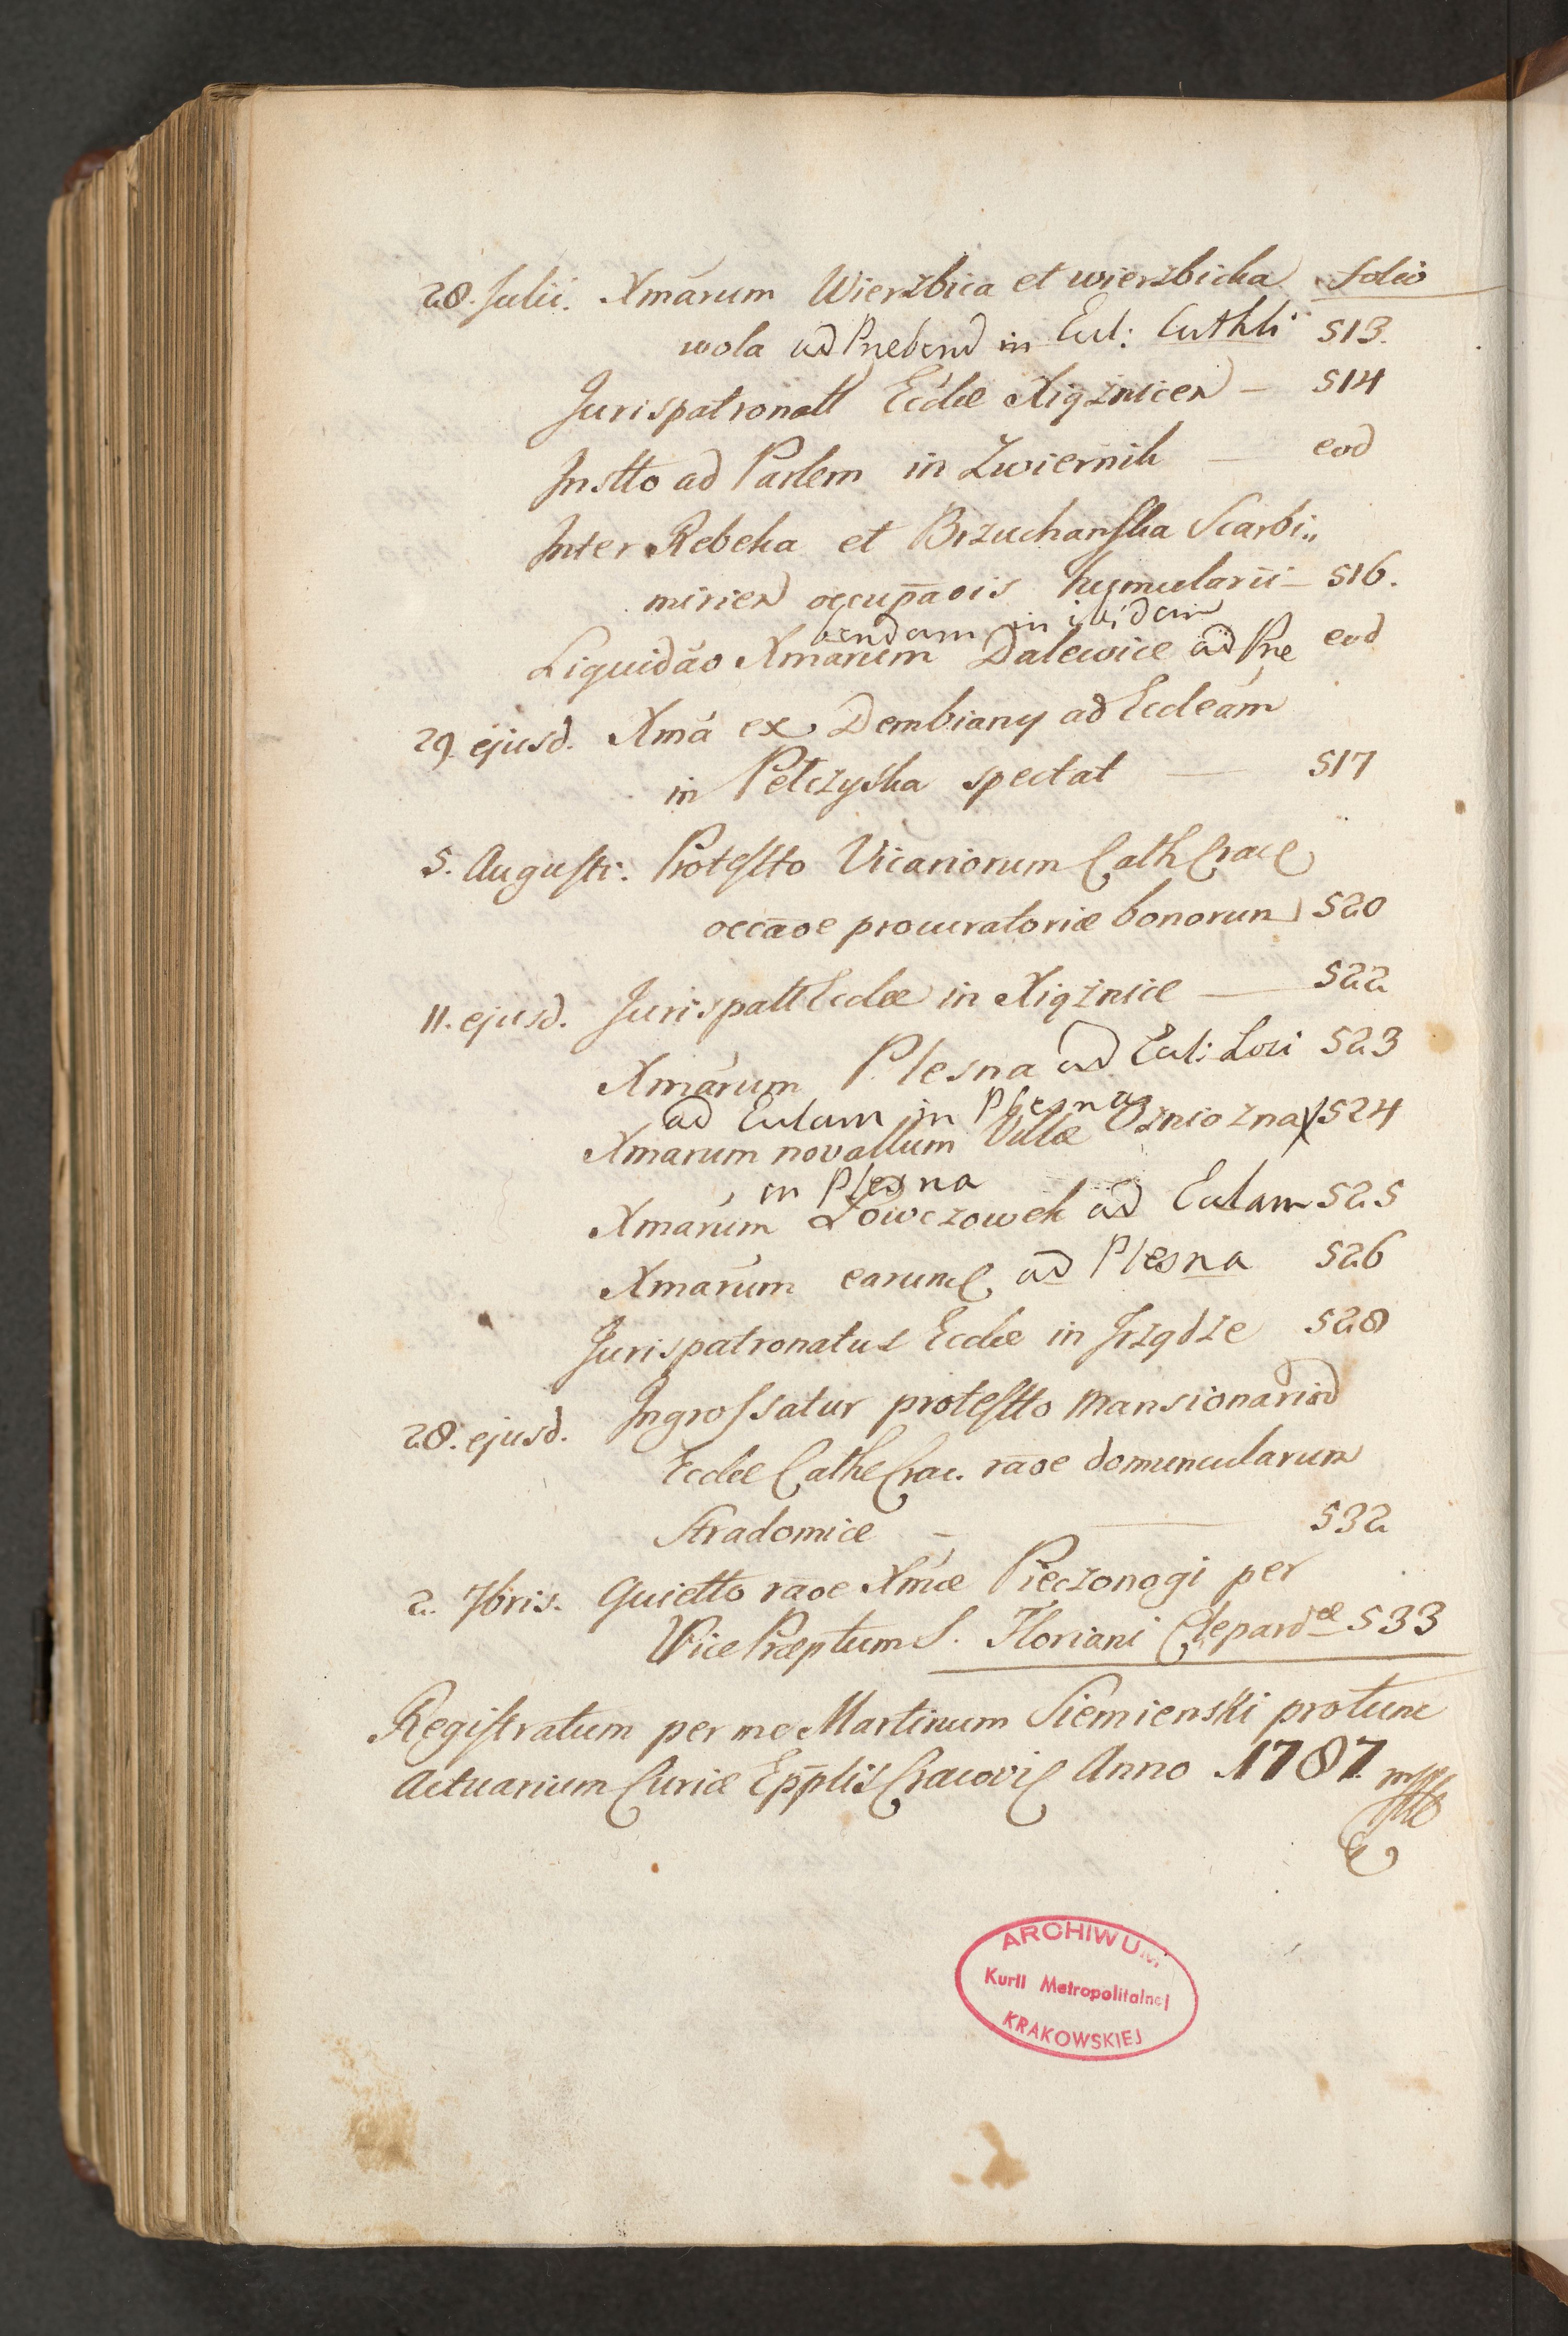 28. Julii. Xmārum Wierzbica et wierzbicka folio
wola ad Prebend in Eccl: Cathli 513.
Jurispatronatt Ecclæ Xiąznicen — 514
Instto ad Parlem in Zwiernik — eod
Inter Rebeka et Brzuchanſka Scarbi„
mirien occupāois humularii — 516.
bendam in ibidem
Liquidāo Xmārum Dalewice ad Pre eod
29. ejusd. Xmā ex Dembiany ad Ecclēam
in Pełczyska spectat — 517
5. Auguſti. Proteſtto Vicariorum Cath Crac
occāoe procuratoriæ bonorum 520
11. ejusd. Jurispatt Ecclæ in Xiąznice — 522
Xmārum Plesna ad Eccl: Loci 523
ad Eccl̄am in Plesna
Xmarum novallum Villæ 524
in Plesna
Xmārum Łowczowek ad Ecclam 525
Xmārum earund ad Plesna 526
Jurispatronatus Ecclæ in Irządze 528
28. ejusd. Ingroſsatur proteſtto Mansionariod
Ecclæ Cathe Crac. rāoe domuncularum
Stradomiæ — 532
2. 7bris. Quietto rāoe Xmæ Pieczonogi per
Vice Præptum S. Floriani Clepardæ 533
Regiſtratum per me Martinum Siemienski protunc
Actuarium Curiæ Epp̄lis Cracovi Anno 1787.
ARCHIWUM
Kurii Metropolitalnej
KRAKOWSKIEJ